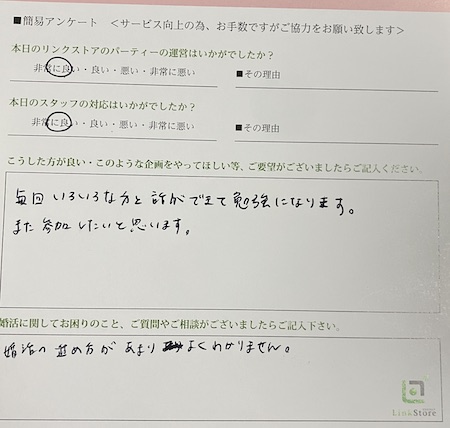 ■簡易アンケート <サービス向上の為、お手数ですがご協力をお願い致します>
本日のリンクストアのパーティーの運営はいかがでしたか？
非常に良い・良い・悪い・非常に悪い ■その理由
本日のスタッフの対応はいかがでしたか？
非常に良い・良い・悪い・非常に悪い ■その理由
こうした方が良い・このような企画をやってほしい等、ご要望がございましたらご記入ください。
毎回 いろいろな方と話ができて勉強になります。
また参加したいと思います。
婚活に関してお困りのこと、ご質問やご相談がございましたらご記入下さい。
婚活の進め方があまり よくわかりません。
LinkStore